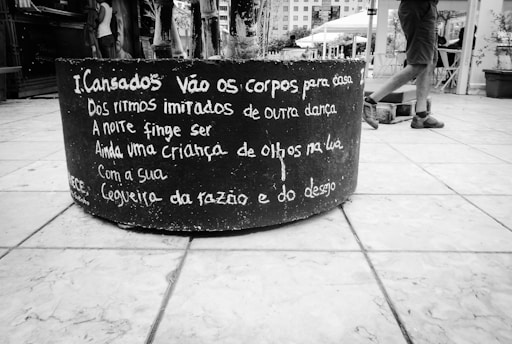 I. Cansados vão os corpos para casa
Dos ritmos imitados de outra dança
A noite finge ser
Ainda uma criança de olhos na lua
Com a sua
Cegueira da razão e do desejo